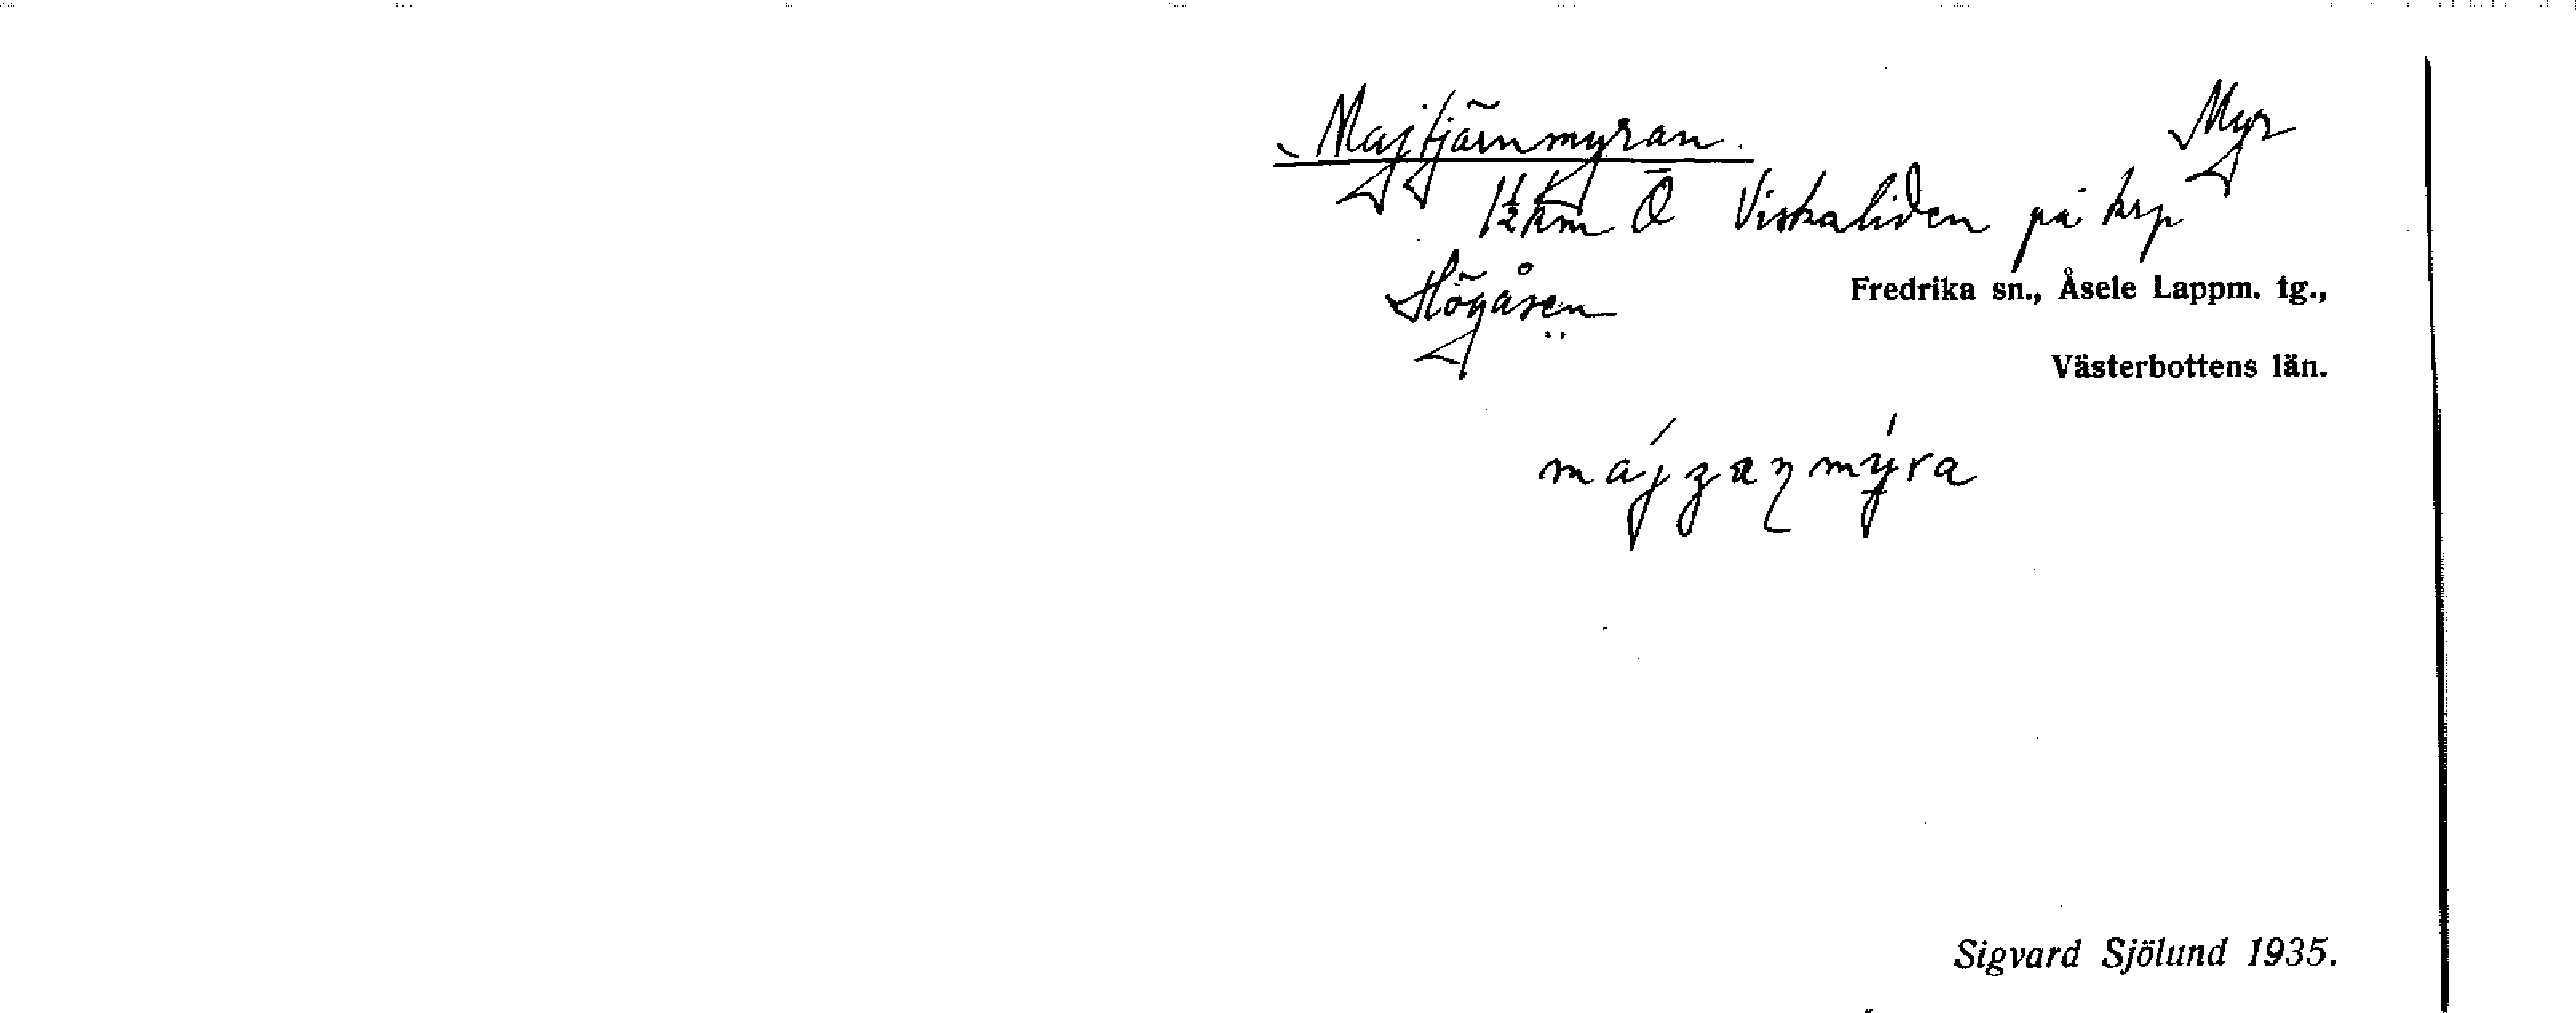 Majtjärnmyran. Myr
1½ km Ö Viskaliden på krp
Högåsen
Fredrika sn., Åsele Lappm. tg.,
Västerbottens län.
Sigvard Sjölund 1935.